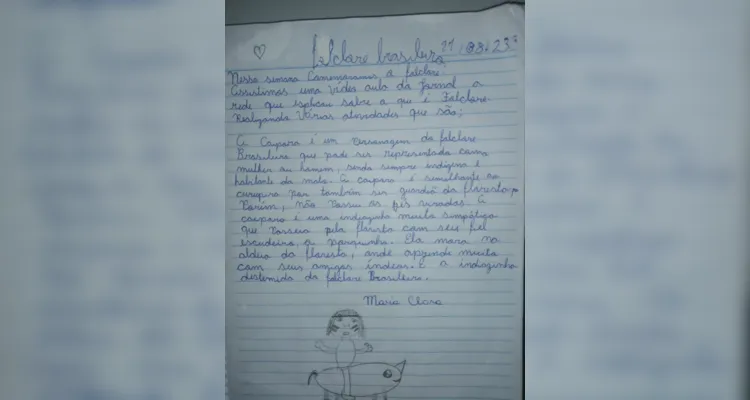 folclore brasileiro 21/08/23
Nessa semana Comemoramos o folclore.
Assistimos uma vídeo aula do Jornal a
rede que explicou sobre o que é Folclore.
Realizando Várias atividades que são;
A Caipora é um personagem do folclore
Brasileiro que pode ser representado como
mulher ou homem, sendo sempre indígena e
habitante da mata. A caipora é semelhante ao
curupira por também ser guardiã da floresta,
Porém, não Possui os pés virados. A
caipora é uma indiazinha muito simpática
que Passeia pela floresta com seu fiel
escudeiro, o porquinho. Ela mora na
aldeia da floresta, onde aprende muito
com seus amigos índios. É a indiazinha
destemida do folclore Brasileiro.
Maria Clara